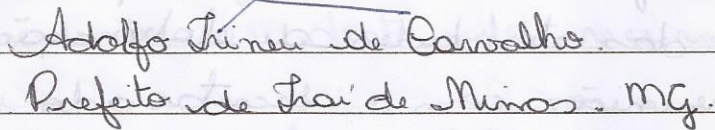 Adolfo Irineu de Carvalho.
Prefeito de Iraí de Minas. MG.